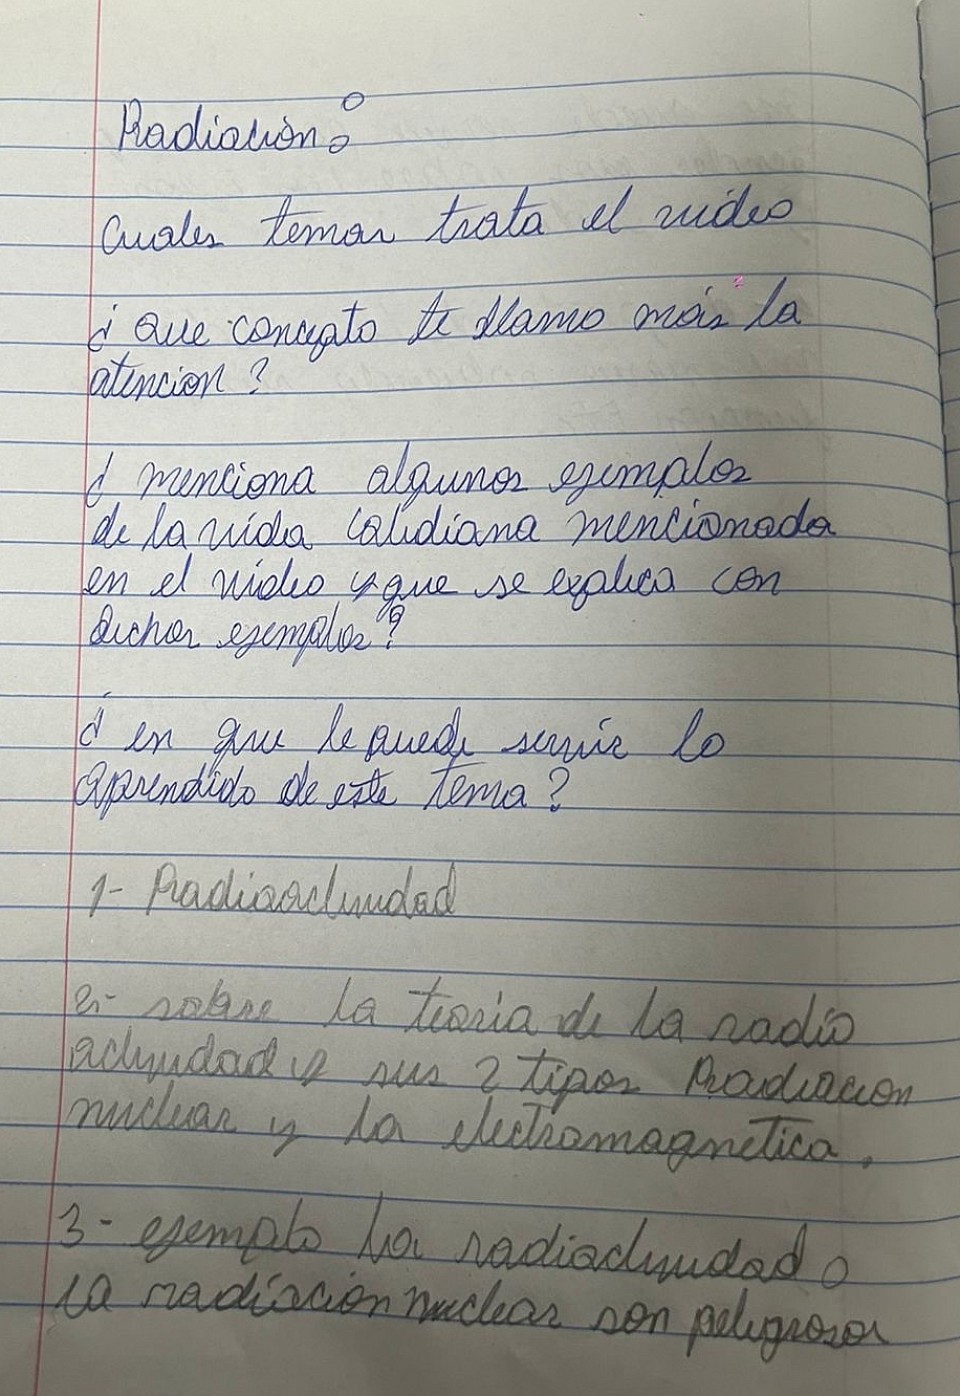 Radiación:
Cuales temas trata el video
¿ que concepto te llamo más la
atencion?
¿ menciona algunos ejemplos
de la vida catidiana mencionada
en el video y que se explica con
dichos ejemplos?
¿ en que le puede servir lo
aprendido de este tema?
1- Radioactividad
2- sobre la teoria de la radio
actividad y sus 2 tipos Radiacion
nuclear y la electromagnetica.
3- ejemplo la radiactividad o
la radiación nuclear son peligrosos